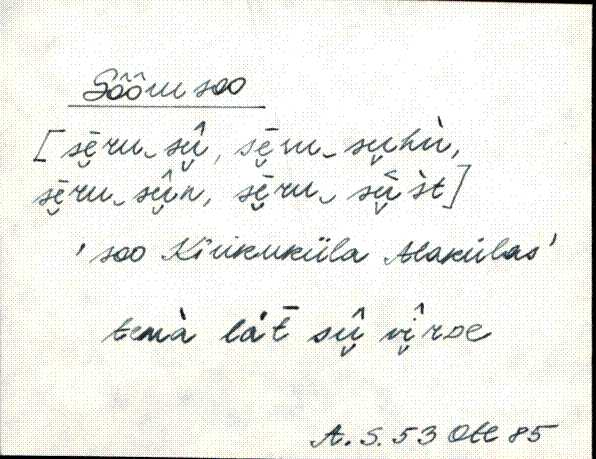 Sõõru soo
[sē̮ru‿sū̮̂, sē̮ru‿su̮hù,
sē̮ru‿sū̮̂n, sē̮ru‿sū̮̀št]
' soo Kirikuküla Alakülas'
temà lät̄ sū̮̂ vî̮rde
A. S. 53 Ott 85